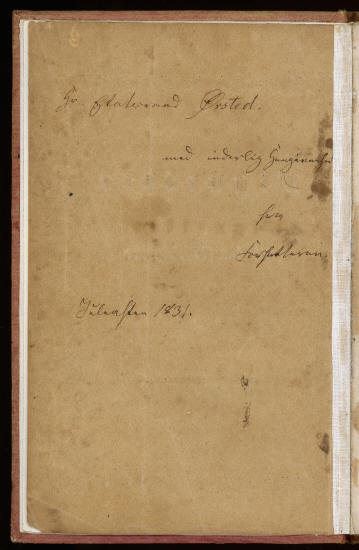 Hr. Etatsraad Ørsted.
med inderlig Hengivenhed
fra
Forfatteren.
Juleaften 1831.